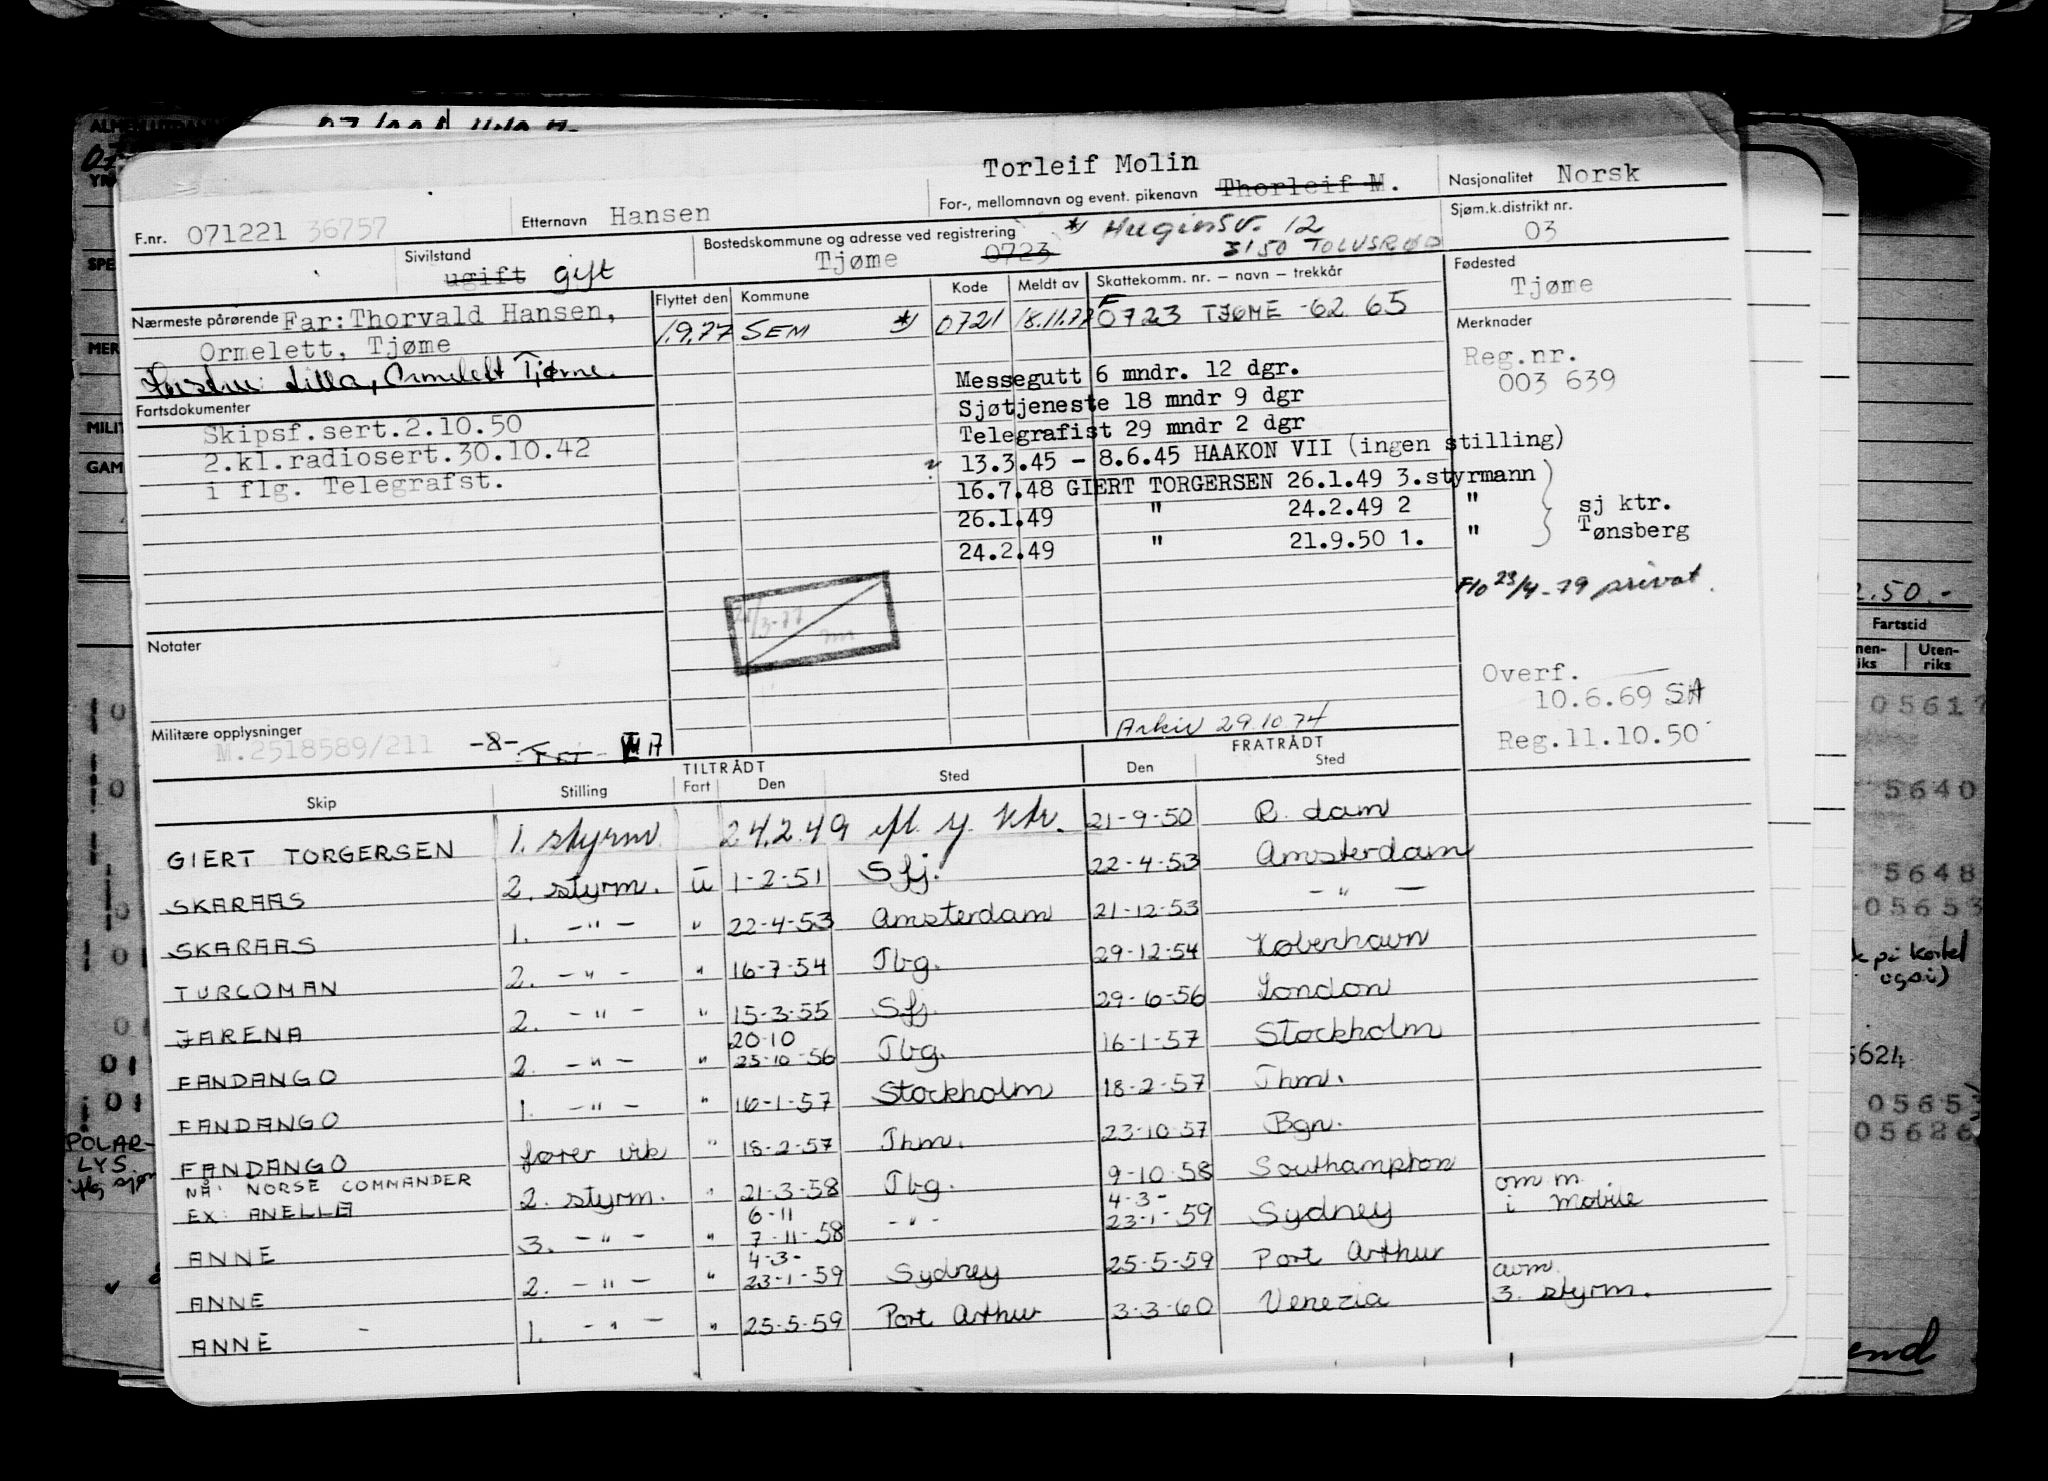 Torleif Molin
F.nr. 071221 36757 Etternavn Hansen For-, mellomnavn og event. pikenavn Thorleif M. Nasjonalitet Norsk
Sivilstand ugift gift Bostedskommune og adresse ved registrering Tjøme 0723 *) Huginsv. 12 Sjøm.k.distrikt nr. 03
3150 TOLVSRØD
Nærmeste pårørende Far: Thorvald Hansen, Flyttet den Kommune Kode Meldt av Skattekomm. nr. – navn – trekkår Fødested Tjøme
Ormelett, Tjøme 1.9.77 SEM *) 0721 18.11.77 F 0723 TJØME -62 65 Merknader
Hustru: Lilla, Ormelett Tjøme. Reg.nr.
003 639
Messegutt 6 mndr. 12 dgr.
Fartsdokumenter Sjøtjeneste 18 mndr 9 dgr
Skipsf.sert.2.10.50 Telegrafist 29 mndr 2 dgr
2.kl.radiosert.30.10.42 13.3.45 – 8.6.45 HAAKON VII (ingen stilling)
i flg. Telegrafst. 16.7.48 GIERT TORGERSEN 26.1.49 3.styrmann
26.1.49 " 24.2.49 2 " sj ktr.
24.2.49 " 21.9.50 1. " Tønsberg
Flo 23/4-79 privat.
Notater
Overf.
10.6.69 SA
Militære opplysninger Arkiv 29.10.74
M.2518589/211 -8- Reg.11.10.50
TILTRÅDT FRATRÅDT
Skip Stilling Fart Den Sted Den Sted
GIERT TORGERSEN 1. styrm. 24.2.49 21-9-50 R. dam
SKARAAS 2. styrm. U 1-2-51 Sfj. 22-4-53 Amsterdam
SKARAAS 1. -"- " 22-4-53 Amsterdam 21-12-53 -"-
TURCOMAN 2. -"- " 16-7-54 Tbg. 29-12-54 København
JARENA 2. -"- " 15-3-55 Sfj. 29-6-56 London
20-10
FANDANGO 2. -"- " 25-10-56 Tbg. 16-1-57 Stockholm
FANDANGO 1. -"- " 16-1-57 Stockholm 18-2-57 Thm.
FANDANGO fører vik " 18-2-57 Thm. 23-10-57 Bgn.
NÅ: NORSE COMMANDER
EX: ANELLA 2. styrm. " 21-3-58 Tbg. 9-10-58 Southampton
6-11 4-3- om m.
ANNE 3. -"- " 7-11-58 -"- 23-1-59 Sydney i Mobile
4-3-
ANNE 2. -"- " 23-1-59 Sydney 25-5-59 Port Arthur
avm.
ANNE 1. -"- " 25-5-59 Port Arthur 3-3-60 Venezia 3. styrm.
2.50.-
Fartstid
Uten-
riks
5640
5648
05653
også)
5624
POLAR-
LYS